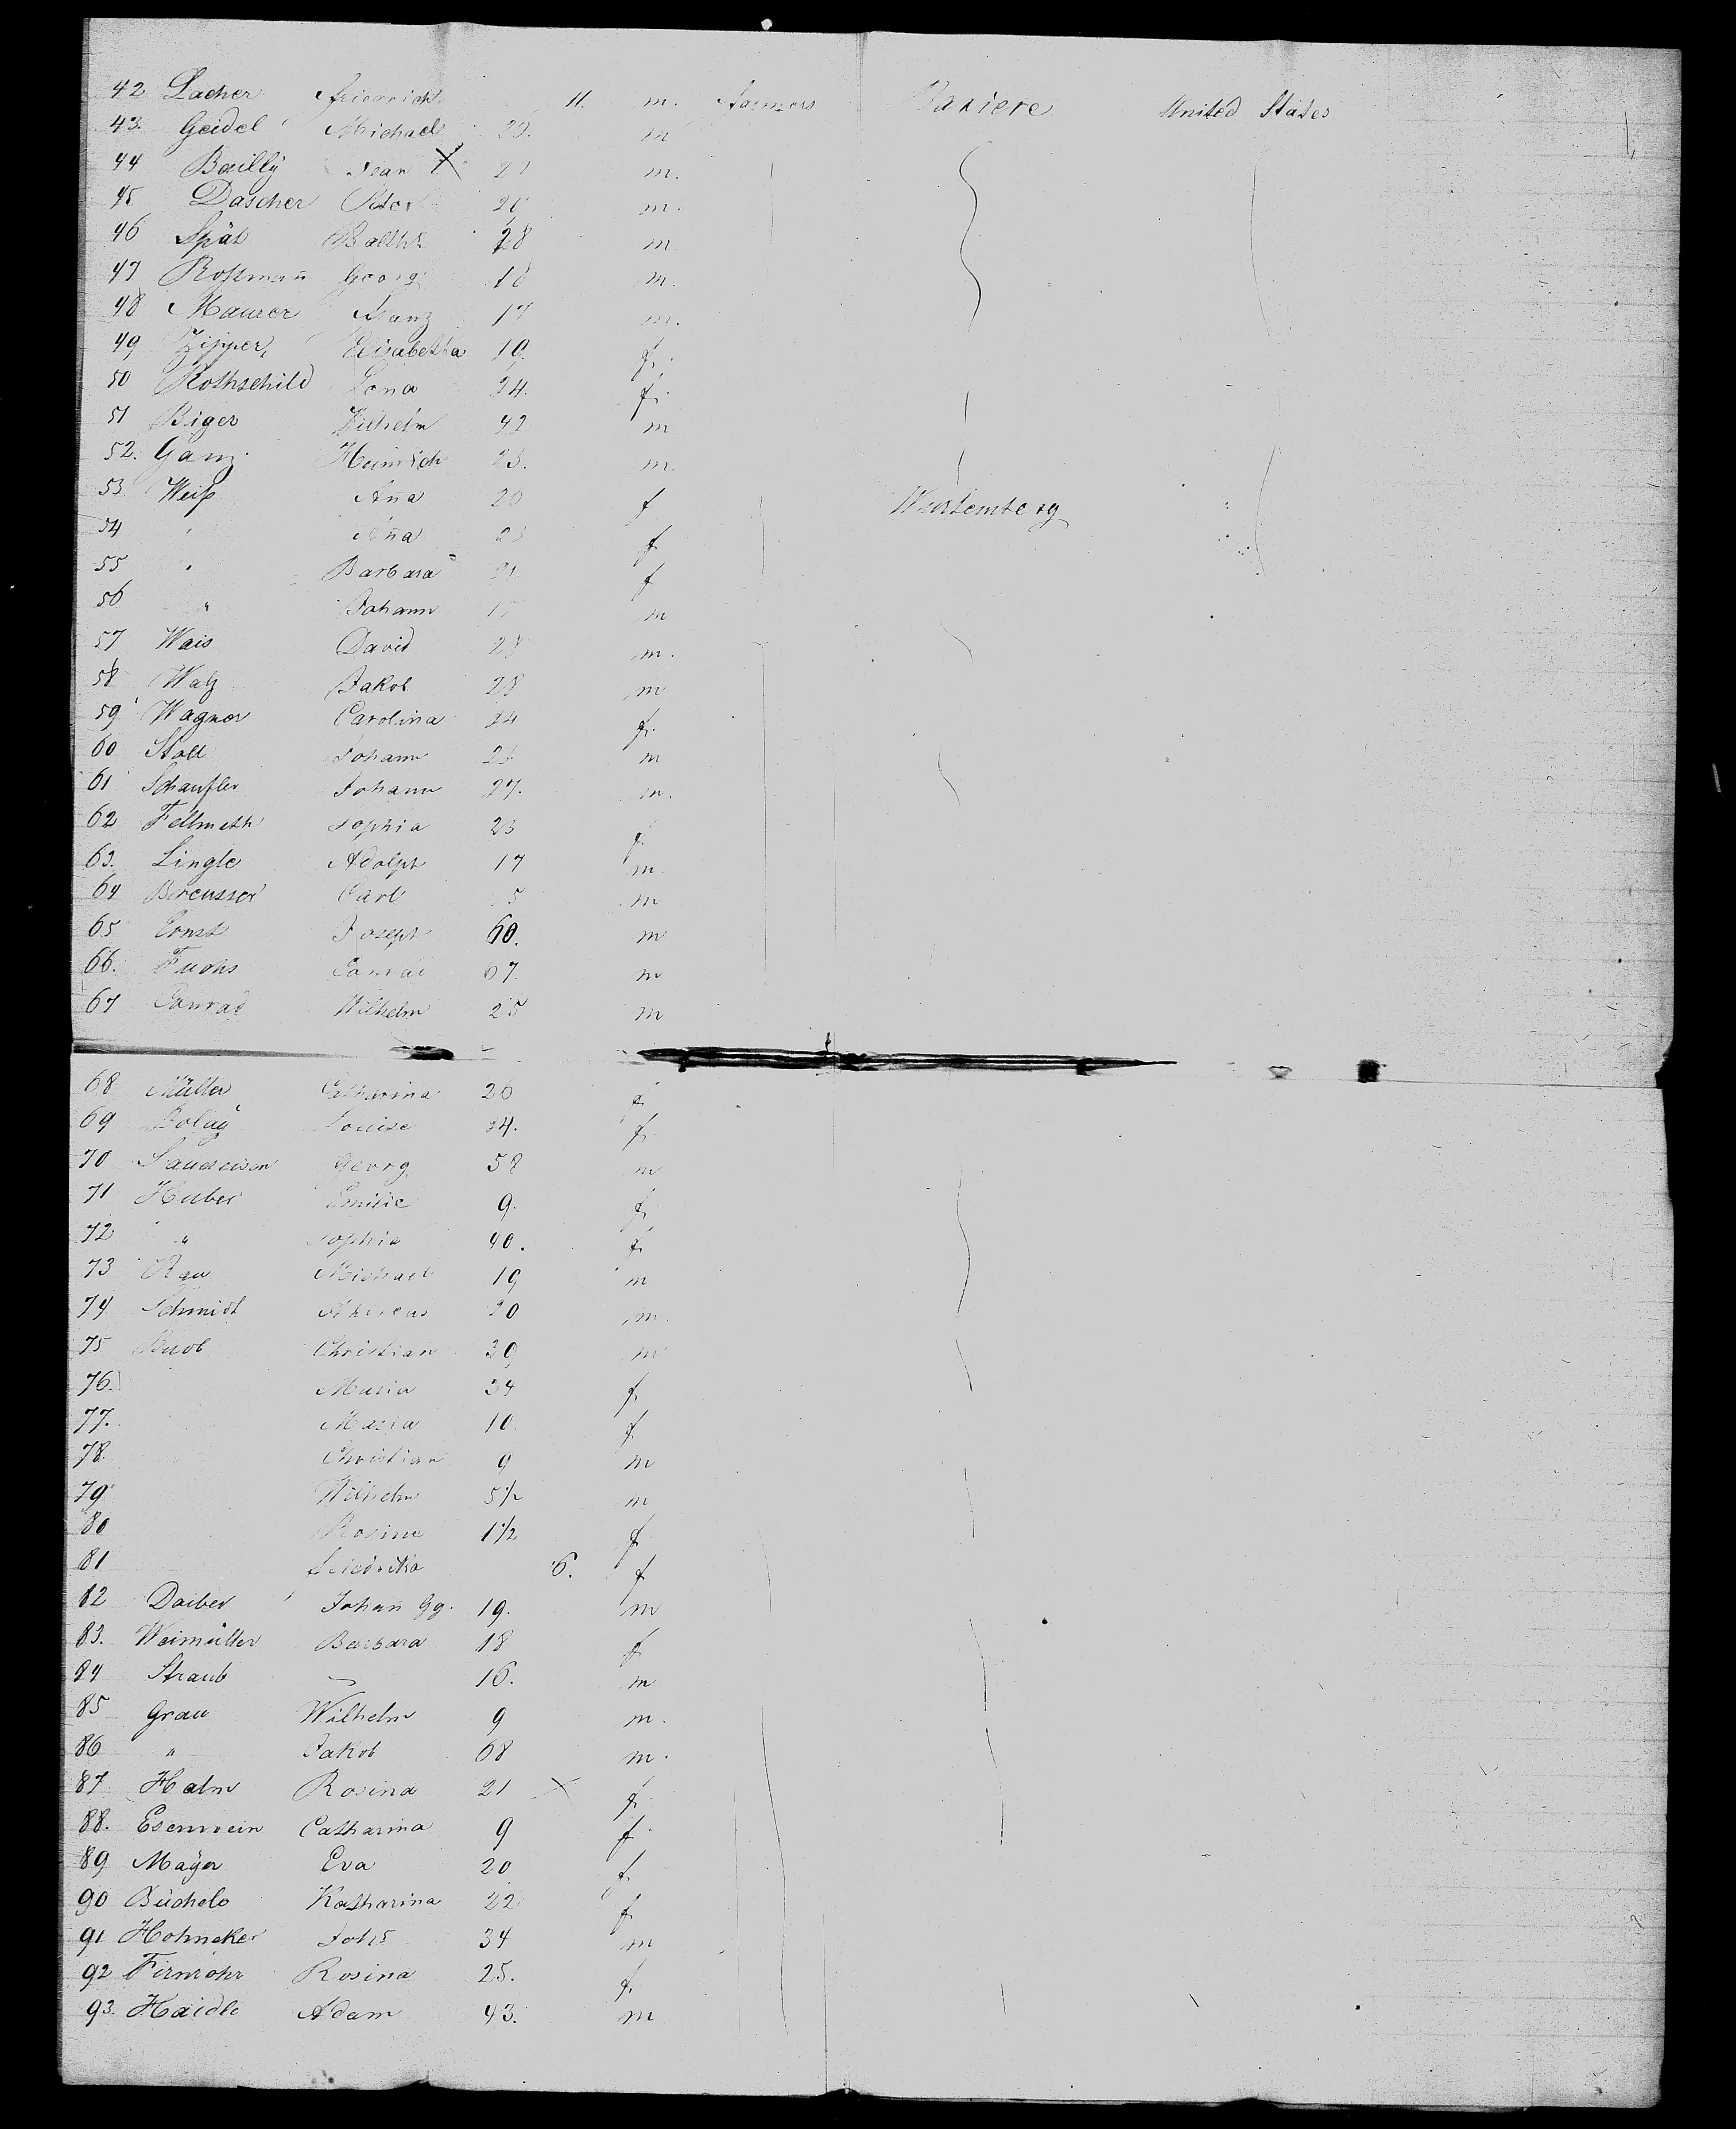 42 Lacher Friedrich 11. m. Farmers Baviere United States
43. Geidel Michael 26. m
44 Bailly Jean X 21 m.
45 Dascher Peter 20 m.
46 Spät Balths 28 m
47 Roßman̄ Georg 18 m.
48 Maurer Franz 17 m.
49 Zipper, Elisabetha 19. f.
50 Rothschild Lena 24. f.
51 Biger Wilhelm 42 m
52. Ganz Heinrich 23. m.
53 Weiß An̄a 20 f Wurtemberg
54 " An̄a 23 f.
55 " Barbara 21 f
56 " Johann m
57 Wais David 28 m.
58 Walz Jakob 28 m
59 Wagner Carolina 24 f.
60 Stoll Johann m
61 Schaufler Johann 27. m.
62 Fellmeth Sophia 23 f.
63. Lingle Adolph 17 m
64 Carl 5 m
65 Ernst Joseph 60. m
66. Fuchs Conrad 67. m
67 Conrad Wilhelm 25 m
68 Müller Catharina 20 f
69 Louise 24. f.
70 Georg 58 m
71 Huber Emilie 9. f.
72 " Sophia 40. f.
73 Rau Michael 19 m
74 Schmidt Andreas 20 m.
75 Buob Christian 39 m
76. Maria 34 f.
77. Maria 10 f
78. Christian 9 m
79 Wilhelm 5½ m
80 Rosine 1½ f
81 Friedrika 6. f
82 Daiber Johan̄ Gg. 19. m
83. Weimüller Barbara 18 f
84 Straub 16. m
85 Grau Wilhelm 9 m.
86 " Jakob 68 m.
87 Halm Rosina 21 X f.
88. Esenwein Catharina 9 f
89 Mayer Eva 20 f.
90 Büchele Katharina 22 f
91 Hohneker Johs 34 m
92 Firnrohr Rosina 25. f.
93. Haidle Adam 43. m